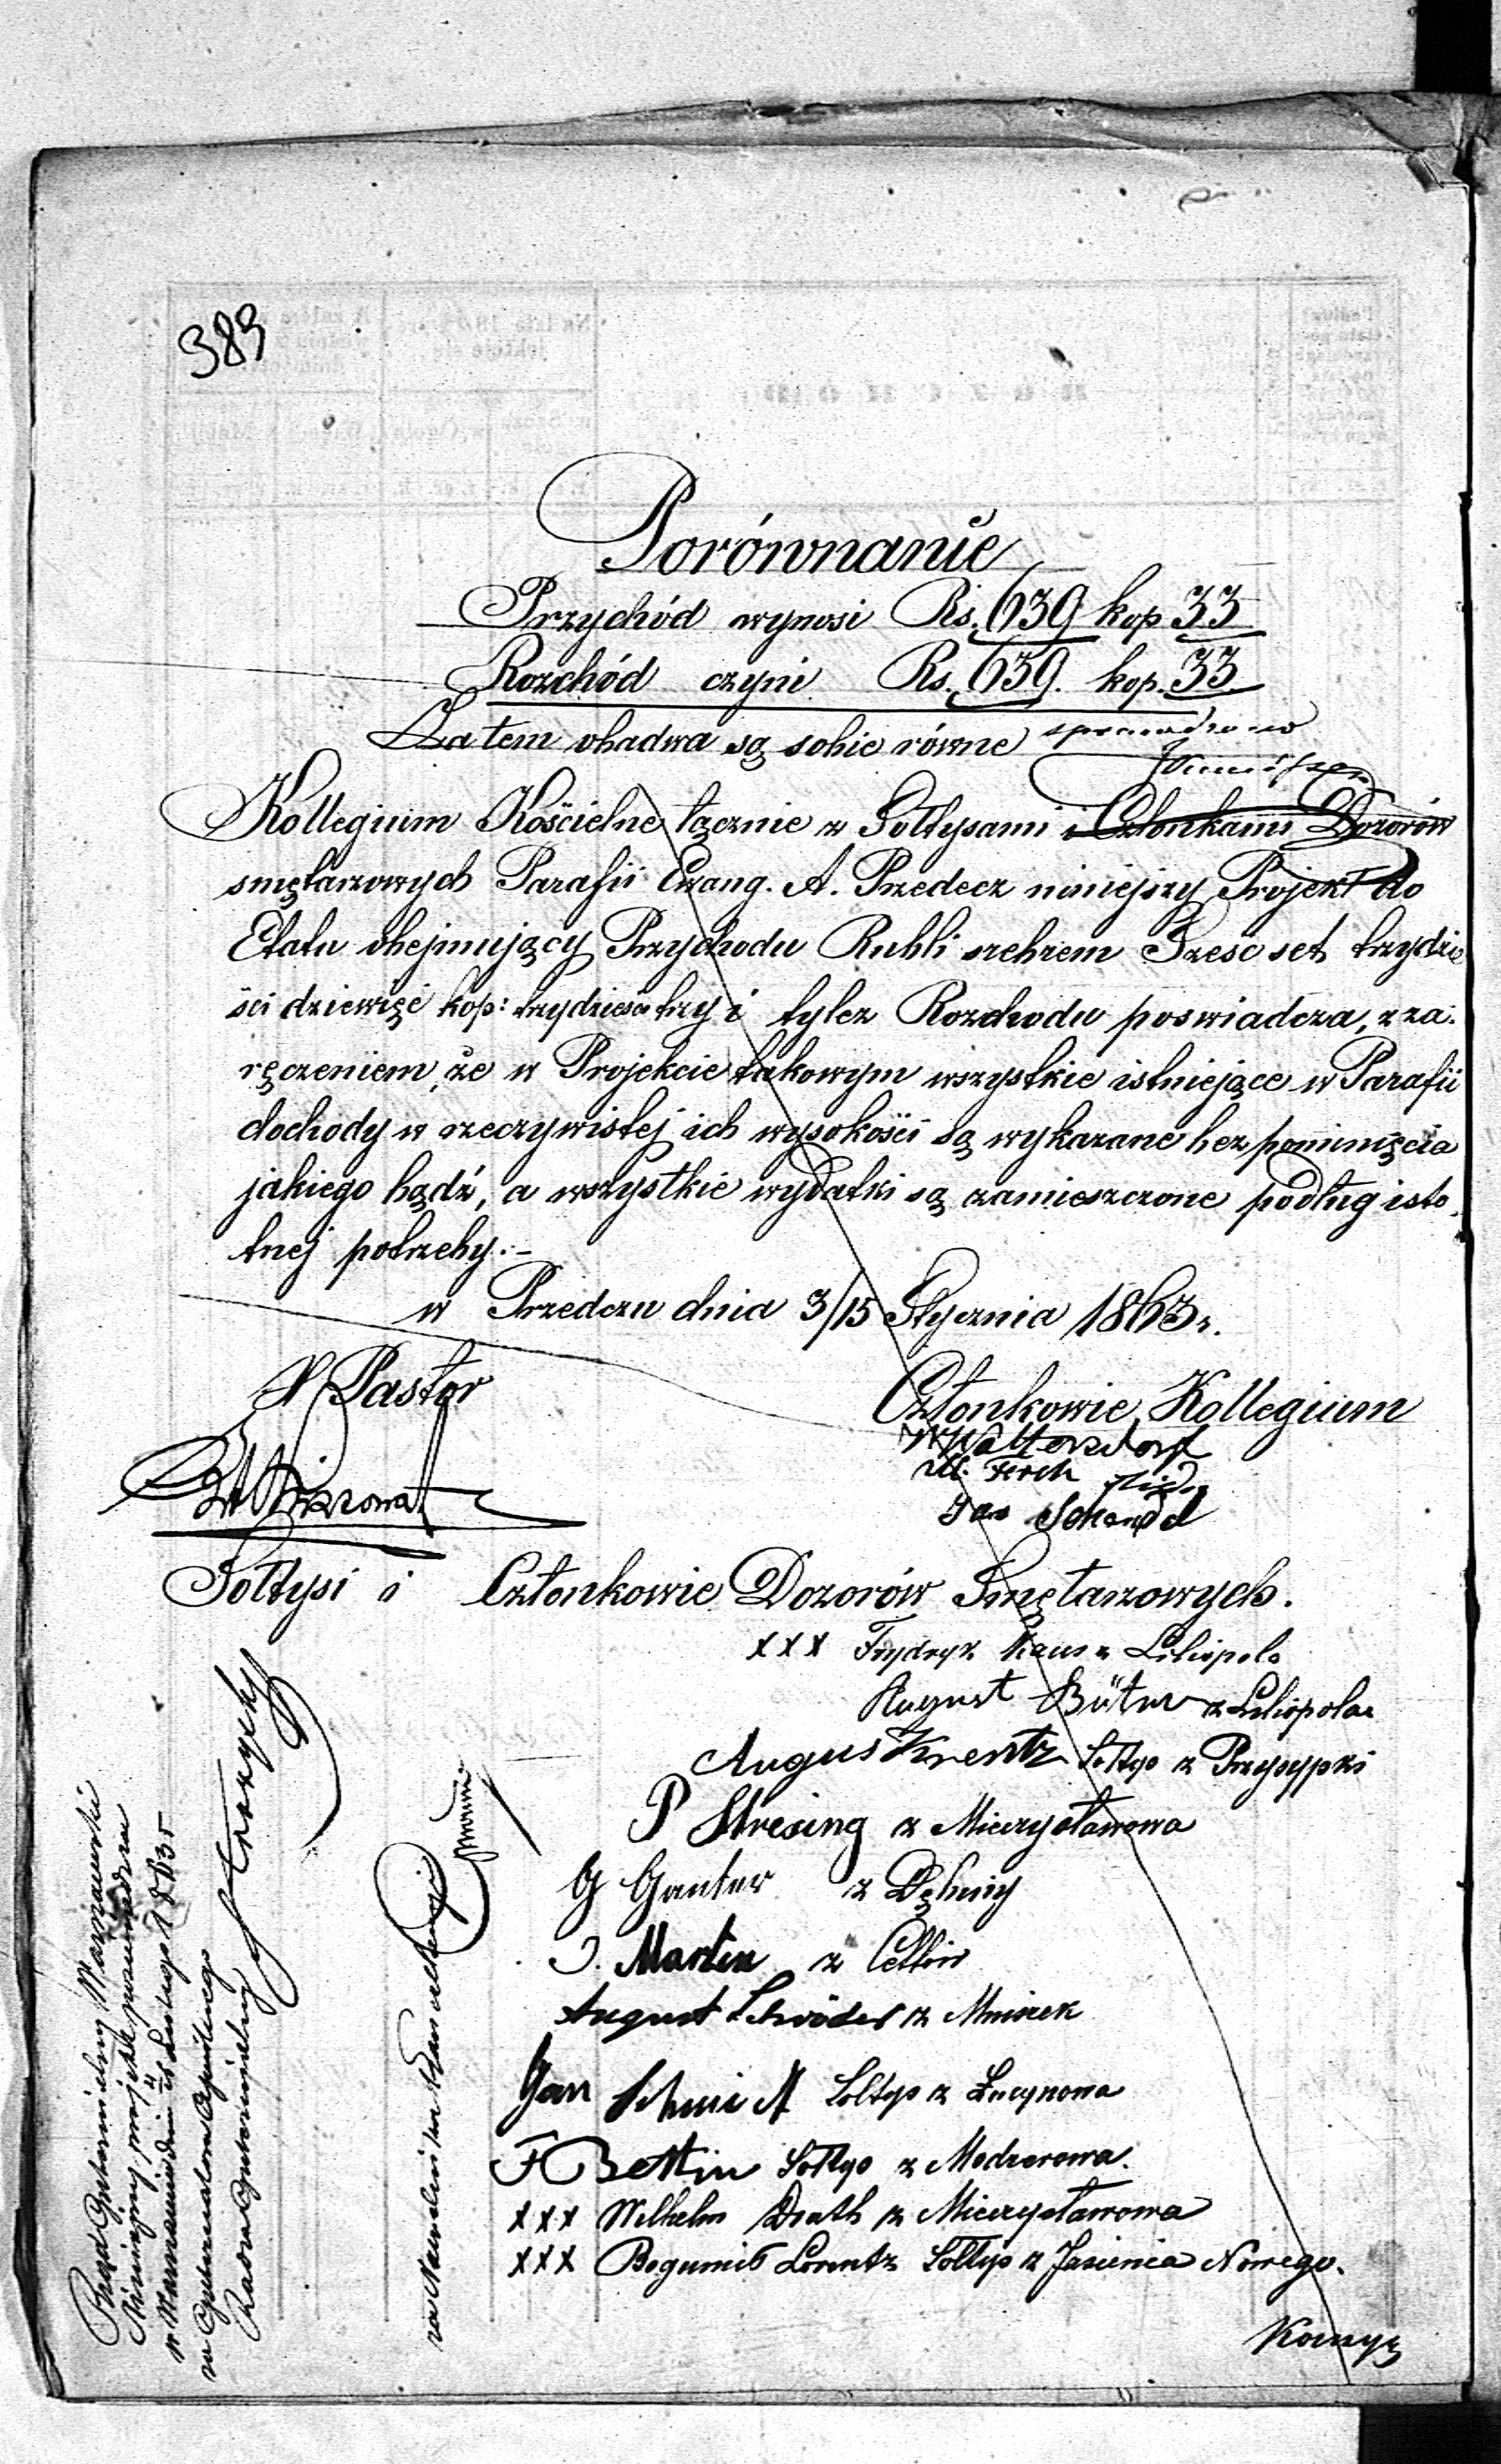 383
Porównanie
Przychód wynosi Rs. 639 kop 33
Rozchód czyni Rs. 639. kop. 33
Zatem obadwa są sobie równe sprawdzono
Kollegium Kościelne łącznie z Sołtysami i Członkami Dozorów
smętarzowych Parafii Ewang. A. Przedecz niniejszy Projekt do
Etatu obejmujący Przychodu Rubli srebrem Szesc set trzydzie
ści dziewięć kop: trzydzieści trzy i tylez Rozchodu poswiadcza, z za-
ręczeniem, że w Projekcie takowym wszystkie istniejące w Parafii
dochody w rzeczywistej ich wysokości są wykazane bez pominięcia
jakiego bądź, a wszystkie wydatki są zamieszczone podług isto-
tnej potrzeby.-
w Przedczu dnia 3/15 Stycznia 1863 r.
Pastor
Członkowie Kollegium
W Waltersdorf
M. Ferch
Jan Schendel
Sołtysi i Członkowie Dozorów Smętarzowych.
xxx Frydryk Kaus z Liliopola
August Büter z Liliopola
August Krentz Sołtys z Przysypki
P Stresing z Mieczysławowa
G Ganter z Dębiny
J. Marten z
August Schröder z Mniszek
Jan Schmidt Sołtys z Łucynowa
F Bettin Sołtys z Modzerowa.
xxx Wilhelm Drath z Mieczysławowa
xxx Bogumił Lorentz Sołtys z Jasienia Nowego.
Rząd Gubernialny Warszawski
Niniejszy projekt
w Warszawie dnia 4/16 Lutego 1863 r
za Gubernatora Cywilnego
Radca Gubernialny
za Naczelnika Kancellaryi